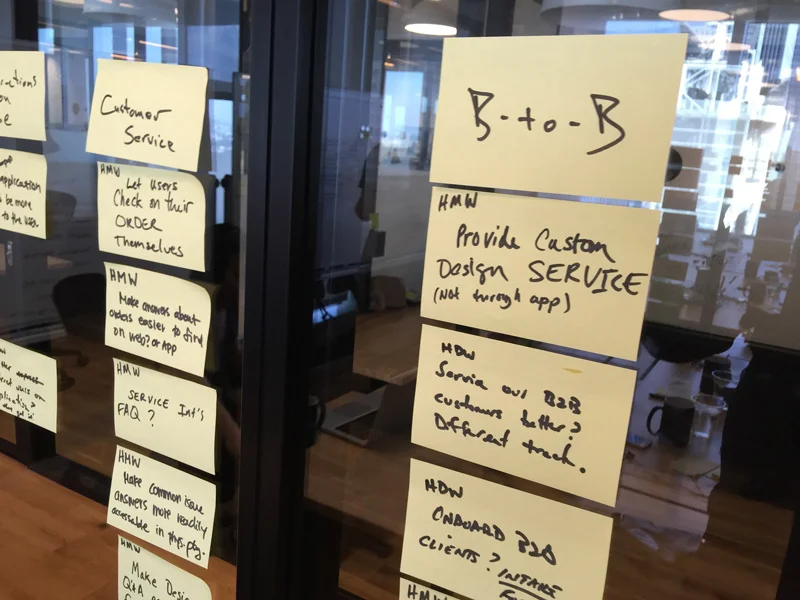 on
Application
be more
to the user
Customer
Service
HMW
Let Users
Check on their
ORDER
Themselves
HMW
Make answers about
orders easier to find
on web? or App
HMW
SERVICE Int's
FAQ?
HMW
Make common issue
answers more readily
accessible in
HMW
Make Design
Q&A
B-to-B
HMW
Provide Custom
Design SERVICE
(Not through app)
HDW
Service our B2B
customers better?
Different track.
HDW
ONBOARD B2B
CLIENTS? INTAKE
HMW